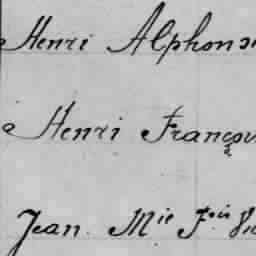 Henri Alphons
Henri Françoi
Jean Mie Fois Vi